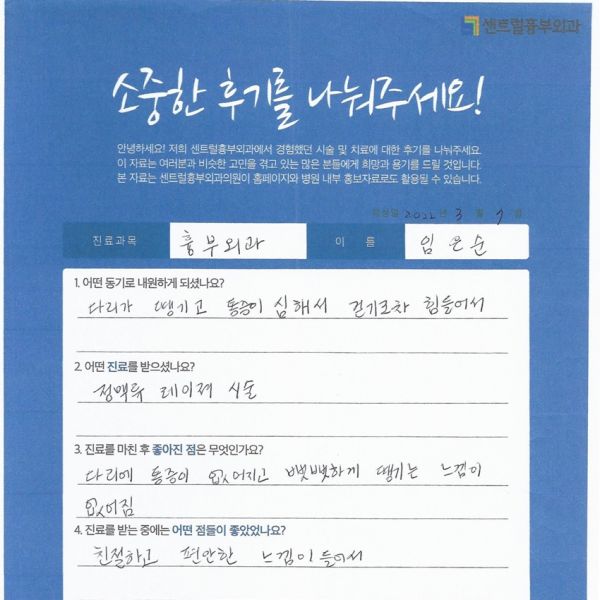 센트럴흉부외과
소중한 후기를 나눠주세요!
안녕하세요! 저희 센트럴흉부외과에서 경험했던 시술 및 치료에 대한 후기를 나눠주세요.
이 자료는 여러분과 비슷한 고민을 겪고 있는 많은 분들에게 희망과 용기를 드릴 것입니다.
본 자료는 센트럴흉부외과의원이 홈페이지와 병원 내부 홍보자료로도 활용될 수 있습니다.
작성일 2022년 3월 7일
진료과목 흉부외과 이름 임은순
1. 어떤 동기로 내원하게 되셨나요?
다리가 땡기고 통증이 심해서 걷기조차 힘들어서
2. 어떤 진료를 받으셨나요?
정맥류 레이져 시술
3. 진료를 마친 후 좋아진 점은 무엇인가요?
다리에 통증이 없어지고 뻣뻣하게 땡기는 느낌이
없어짐
4. 진료를 받는 중에는 어떤 점들이 좋았었나요?
친절하고 편안한 느낌이 들어서